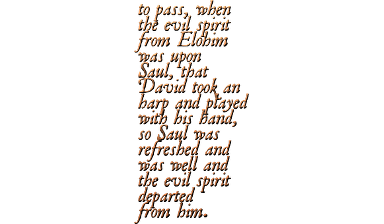 to pass, when
the evil spirit
from Elohim
was upon
Saul, that
David took an
harp and played
with his hand,
so Saul was
refreshed and
was well and
the evil spirit
departed
from him.